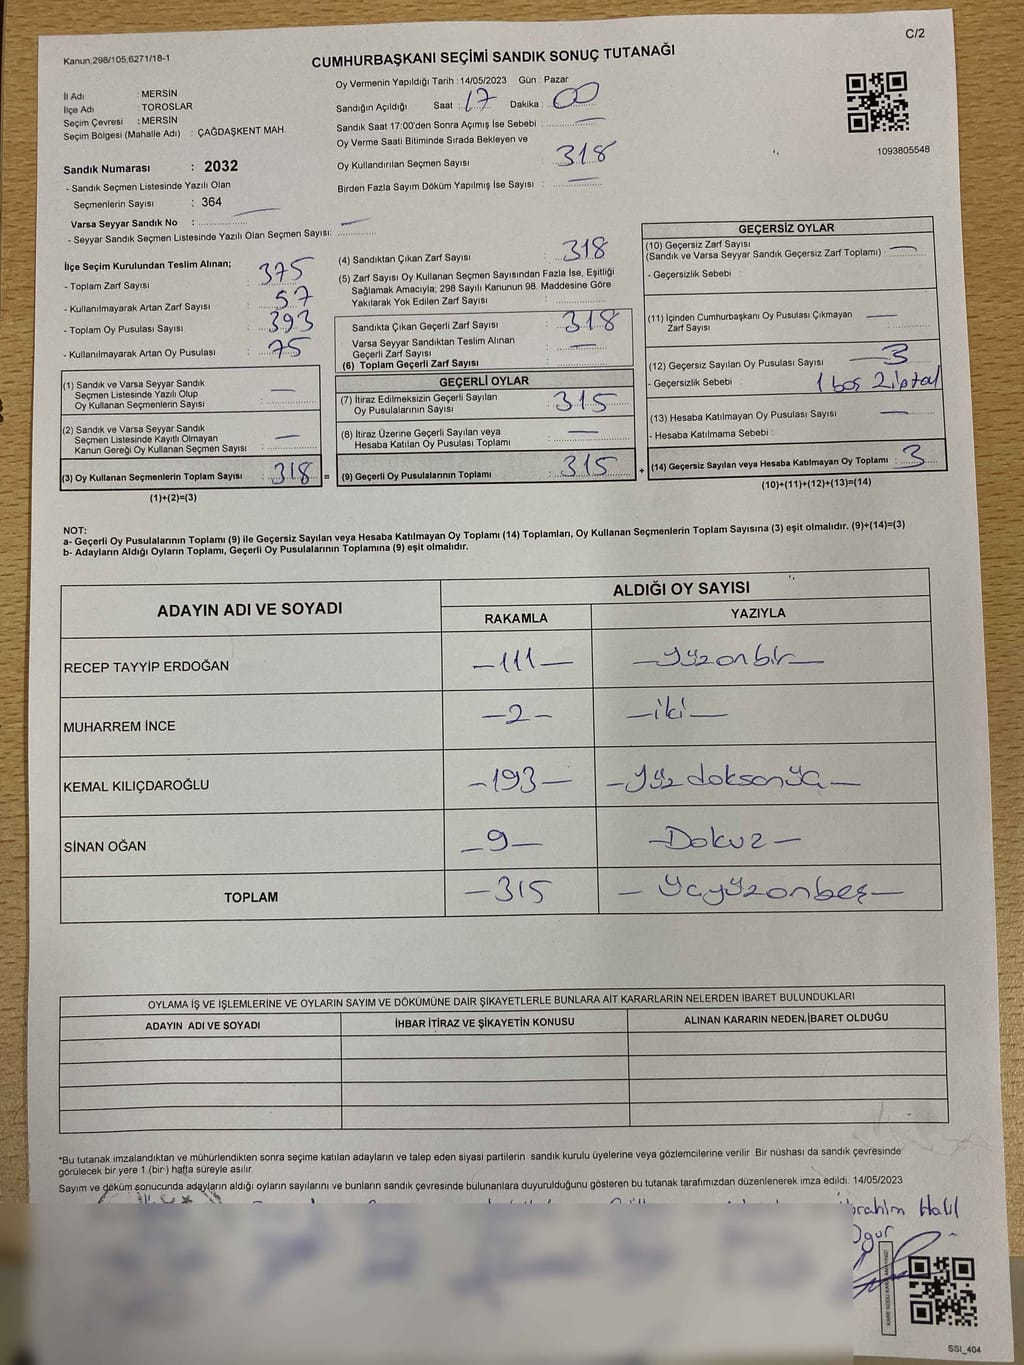 Kanun,298/105,6271/18-1
C/2
CUMHURBAŞKANI SEÇİMİ SANDIK SONUÇ TUTANAĞI
İl Adı : MERSİN
İlçe Adı : TOROSLAR
Seçim Çevresi : MERSİN
Seçim Bölgesi (Mahalle Adı) : ÇAĞDAŞKENT MAH.
Oy Vermenin Yapıldığı Tarih : 14/05/2023 Gün : Pazar
Sandığın Açıldığı Saat : 17 Dakika : 00
Sandık Saat 17:00'den Sonra Açımış İse Sebebi : —
Oy Verme Saati Bitiminde Sırada Bekleyen ve
Oy Kullandırılan Seçmen Sayısı : 318
Birden Fazla Sayım Döküm Yapılmış İse Sayısı : —
1093805548
Sandık Numarası : 2032
- Sandık Seçmen Listesinde Yazılı Olan
Seçmenlerin Sayısı : 364
Varsa Seyyar Sandık No : —
- Seyyar Sandık Seçmen Listesinde Yazılı Olan Seçmen Sayısı: —
İlçe Seçim Kurulundan Teslim Alınan;
- Toplam Zarf Sayısı : 375
- Kullanılmayarak Artan Zarf Sayısı : 57
- Toplam Oy Pusulası Sayısı : 393
- Kullanılmayarak Artan Oy Pusulası : 75
(1) Sandık ve Varsa Seyyar Sandık
Seçmen Listesinde Yazılı Olup
Oy Kullanan Seçmenlerin Sayısı : —
(2) Sandık ve Varsa Seyyar Sandık
Seçmen Listesinde Kayıtlı Olmayan
Kanun Gereği Oy Kullanan Seçmen Sayısı : —
(3) Oy Kullanan Seçmenlerin Toplam Sayısı : 318 =
(1)+(2)=(3)
(4) Sandıktan Çıkan Zarf Sayısı : 318
(5) Zarf Sayısı Oy Kullanan Seçmen Sayısından Fazla İse, Eşitliği
Sağlamak Amacıyla; 298 Sayılı Kanunun 98. Maddesine Göre
Yakılarak Yok Edilen Zarf Sayısı :
Sandıkta Çıkan Geçerli Zarf Sayısı : 318
Varsa Seyyar Sandıktan Teslim Alınan
Geçerli Zarf Sayısı : —
(6) Toplam Geçerli Zarf Sayısı :
GEÇERLİ OYLAR
(7) İtiraz Edilmeksizin Geçerli Sayılan
Oy Pusulalarının Sayısı : 315
(8) İtiraz Üzerine Geçerli Sayılan veya
Hesaba Katılan Oy Pusulası Toplamı : —
(9) Geçerli Oy Pusulalarının Toplamı : 315 +
GEÇERSİZ OYLAR
(10) Geçersiz Zarf Sayısı
(Sandık ve Varsa Seyyar Sandık Geçersiz Zarf Toplamı) : —
- Geçersizlik Sebebi :
(11) İçinden Cumhurbaşkanı Oy Pusulası Çıkmayan
Zarf Sayısı : —
(12) Geçersiz Sayılan Oy Pusulası Sayısı : 3
- Geçersizlik Sebebi : 1 boş 2 iptal
(13) Hesaba Katılmayan Oy Pusulası Sayısı : —
- Hesaba Katılmama Sebebi :
(14) Geçersiz Sayılan veya Hesaba Katılmayan Oy Toplamı : 3
(10)+(11)+(12)+(13)=(14)
NOT:
a- Geçerli Oy Pusulalarının Toplamı (9) ile Geçersiz Sayılan veya Hesaba Katılmayan Oy Toplamı (14) Toplamları, Oy Kullanan Seçmenlerin Toplam Sayısına (3) eşit olmalıdır. (9)+(14)=(3)
b- Adayların Aldığı Oyların Toplamı, Geçerli Oy Pusulalarının Toplamına (9) eşit olmalıdır.
ADAYIN ADI VE SOYADI
ALDIĞI OY SAYISI
RAKAMLA
YAZIYLA
RECEP TAYYİP ERDOĞAN — 111 — — Yüzonbir —
MUHARREM İNCE — 2 — — iki —
KEMAL KILIÇDAROĞLU — 193 — — Yüz doksonüç —
SİNAN OĞAN — 9 — — Dokuz —
TOPLAM — 315 — Üçyüzonbeş —
OYLAMA İŞ VE İŞLEMLERİNE VE OYLARIN SAYIM VE DÖKÜMÜNE DAİR ŞİKAYETLERLE BUNLARA AİT KARARLARIN NELERDEN İBARET BULUNDUKLARI
ADAYIN ADI VE SOYADI
İHBAR İTİRAZ VE ŞİKAYETİN KONUSU
ALINAN KARARIN NEDEN İBARET OLDUĞU
*Bu tutanak imzalandıktan ve mühürlendikten sonra seçime katılan adayların ve talep eden siyasi partilerin sandık kurulu üyelerine veya gözlemcilerine verilir. Bir nüshası da sandık çevresinde
görülecek bir yere 1 (bir) hafta süreyle asılır.
Sayım ve döküm sonucunda adayların aldığı oyların sayılarını ve bunların sandık çevresinde bulunanlara duyurulduğunu gösteren bu tutanak tarafımızdan düzenlenerek imza edildi. 14/05/2023
İbrahim Halil
Ogur
SSI_404